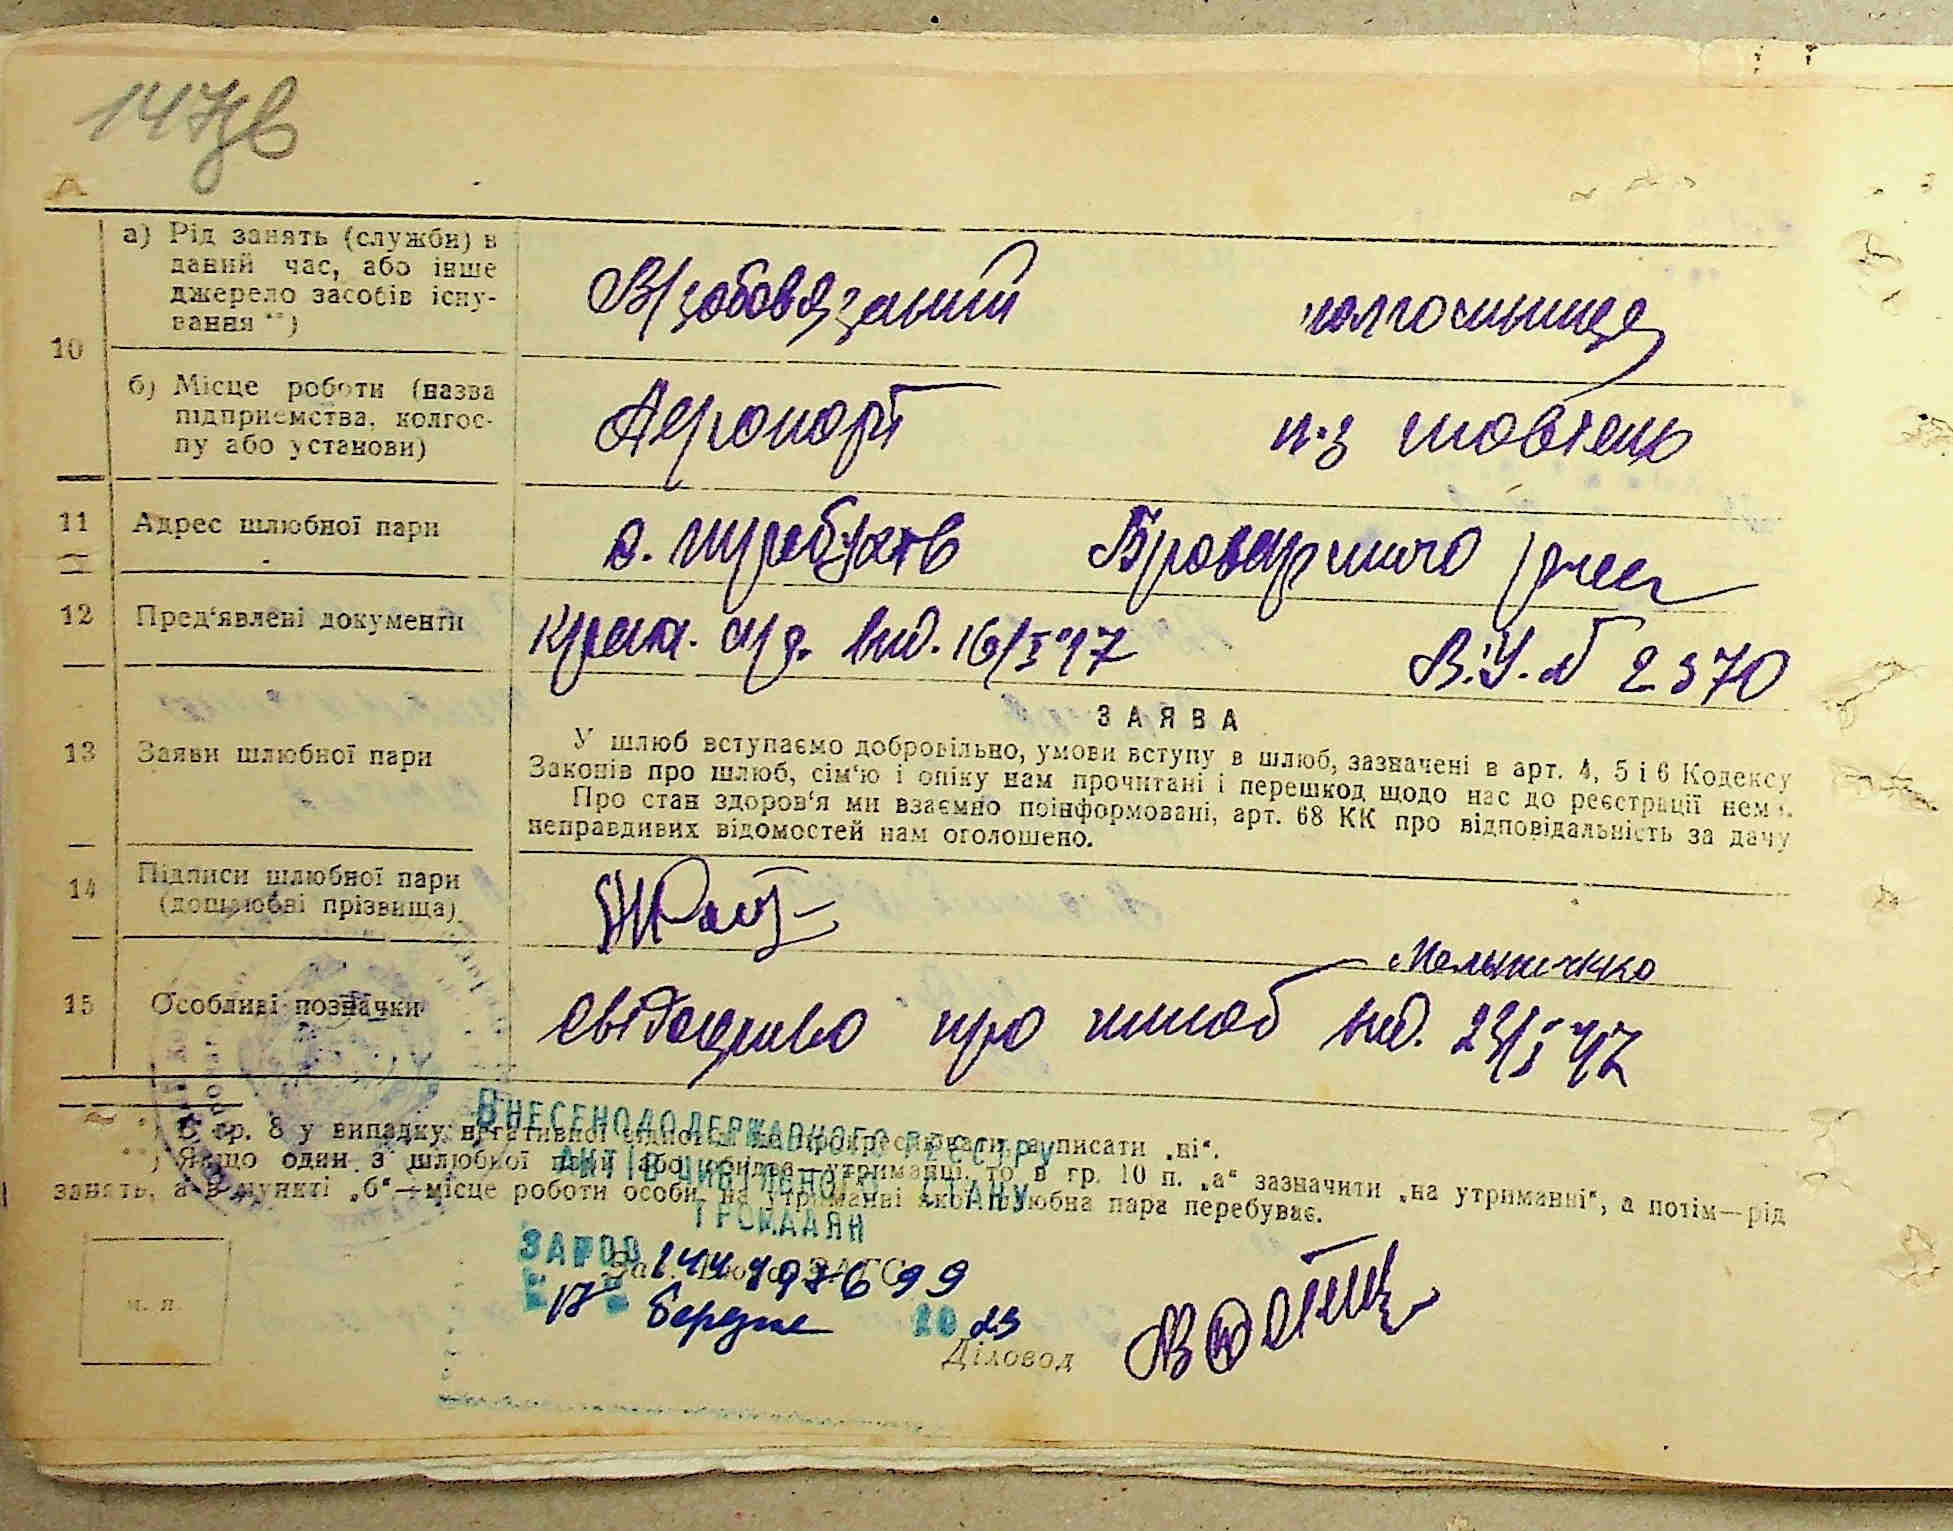 147зв
а) Рід занять (служби) в
даний час, або інше
джерело засобів існу-
вання **)
10
Військовозобов
колгоспниця
б) Місце роботи (назва
підприємства, колгос-
пу або установи)
Аеропорт
к-з жовтень
11 Адрес шлюбної пари
Броварського р-ну
12 Пред'явлені документи
вид. 16/I 47
В.У. № 2370
13 Заяви шлюбної пари
ЗАЯВА
У шлюб вступаємо добровільно, умови вступу в шлюб, зазначені в арт. 4, 5 і 6 Кодексу
Законів про шлюб, сім'ю і опіку нам прочитані і перешкод щодо нас до реєстрації нема.
Про стан здоров'я ми взаємно поінформовані, арт. 68 КК про відповідальність за дачу
неправдивих відомостей нам оголошено.
14 Підписи шлюбної пари
(дошлюбні прізвища)
Мельниченко
15 Особливі позначки
свідоцтво про шлюб вид. 23/I 47
*) В гр. 8 у випадку негативної відповіді на записати „ні“.
**) Якщо один з шлюбної пари або обидва—утриманці, то в гр. 10 п. „а“ зазначити „на утриманні“, а потім—рід
занять, а в пункті „б“—місце роботи особи, на утриманні якої шлюбна пара перебуває.
ВНЕСЕНО ДО ДЕРЖАВНОГО РЕЄСТРУ
АКТІВ ЦИВІЛЬНОГО СТАНУ
ГРОМАДЯН
ЗА № 00
17 березня 2023
м. п.
Діловод